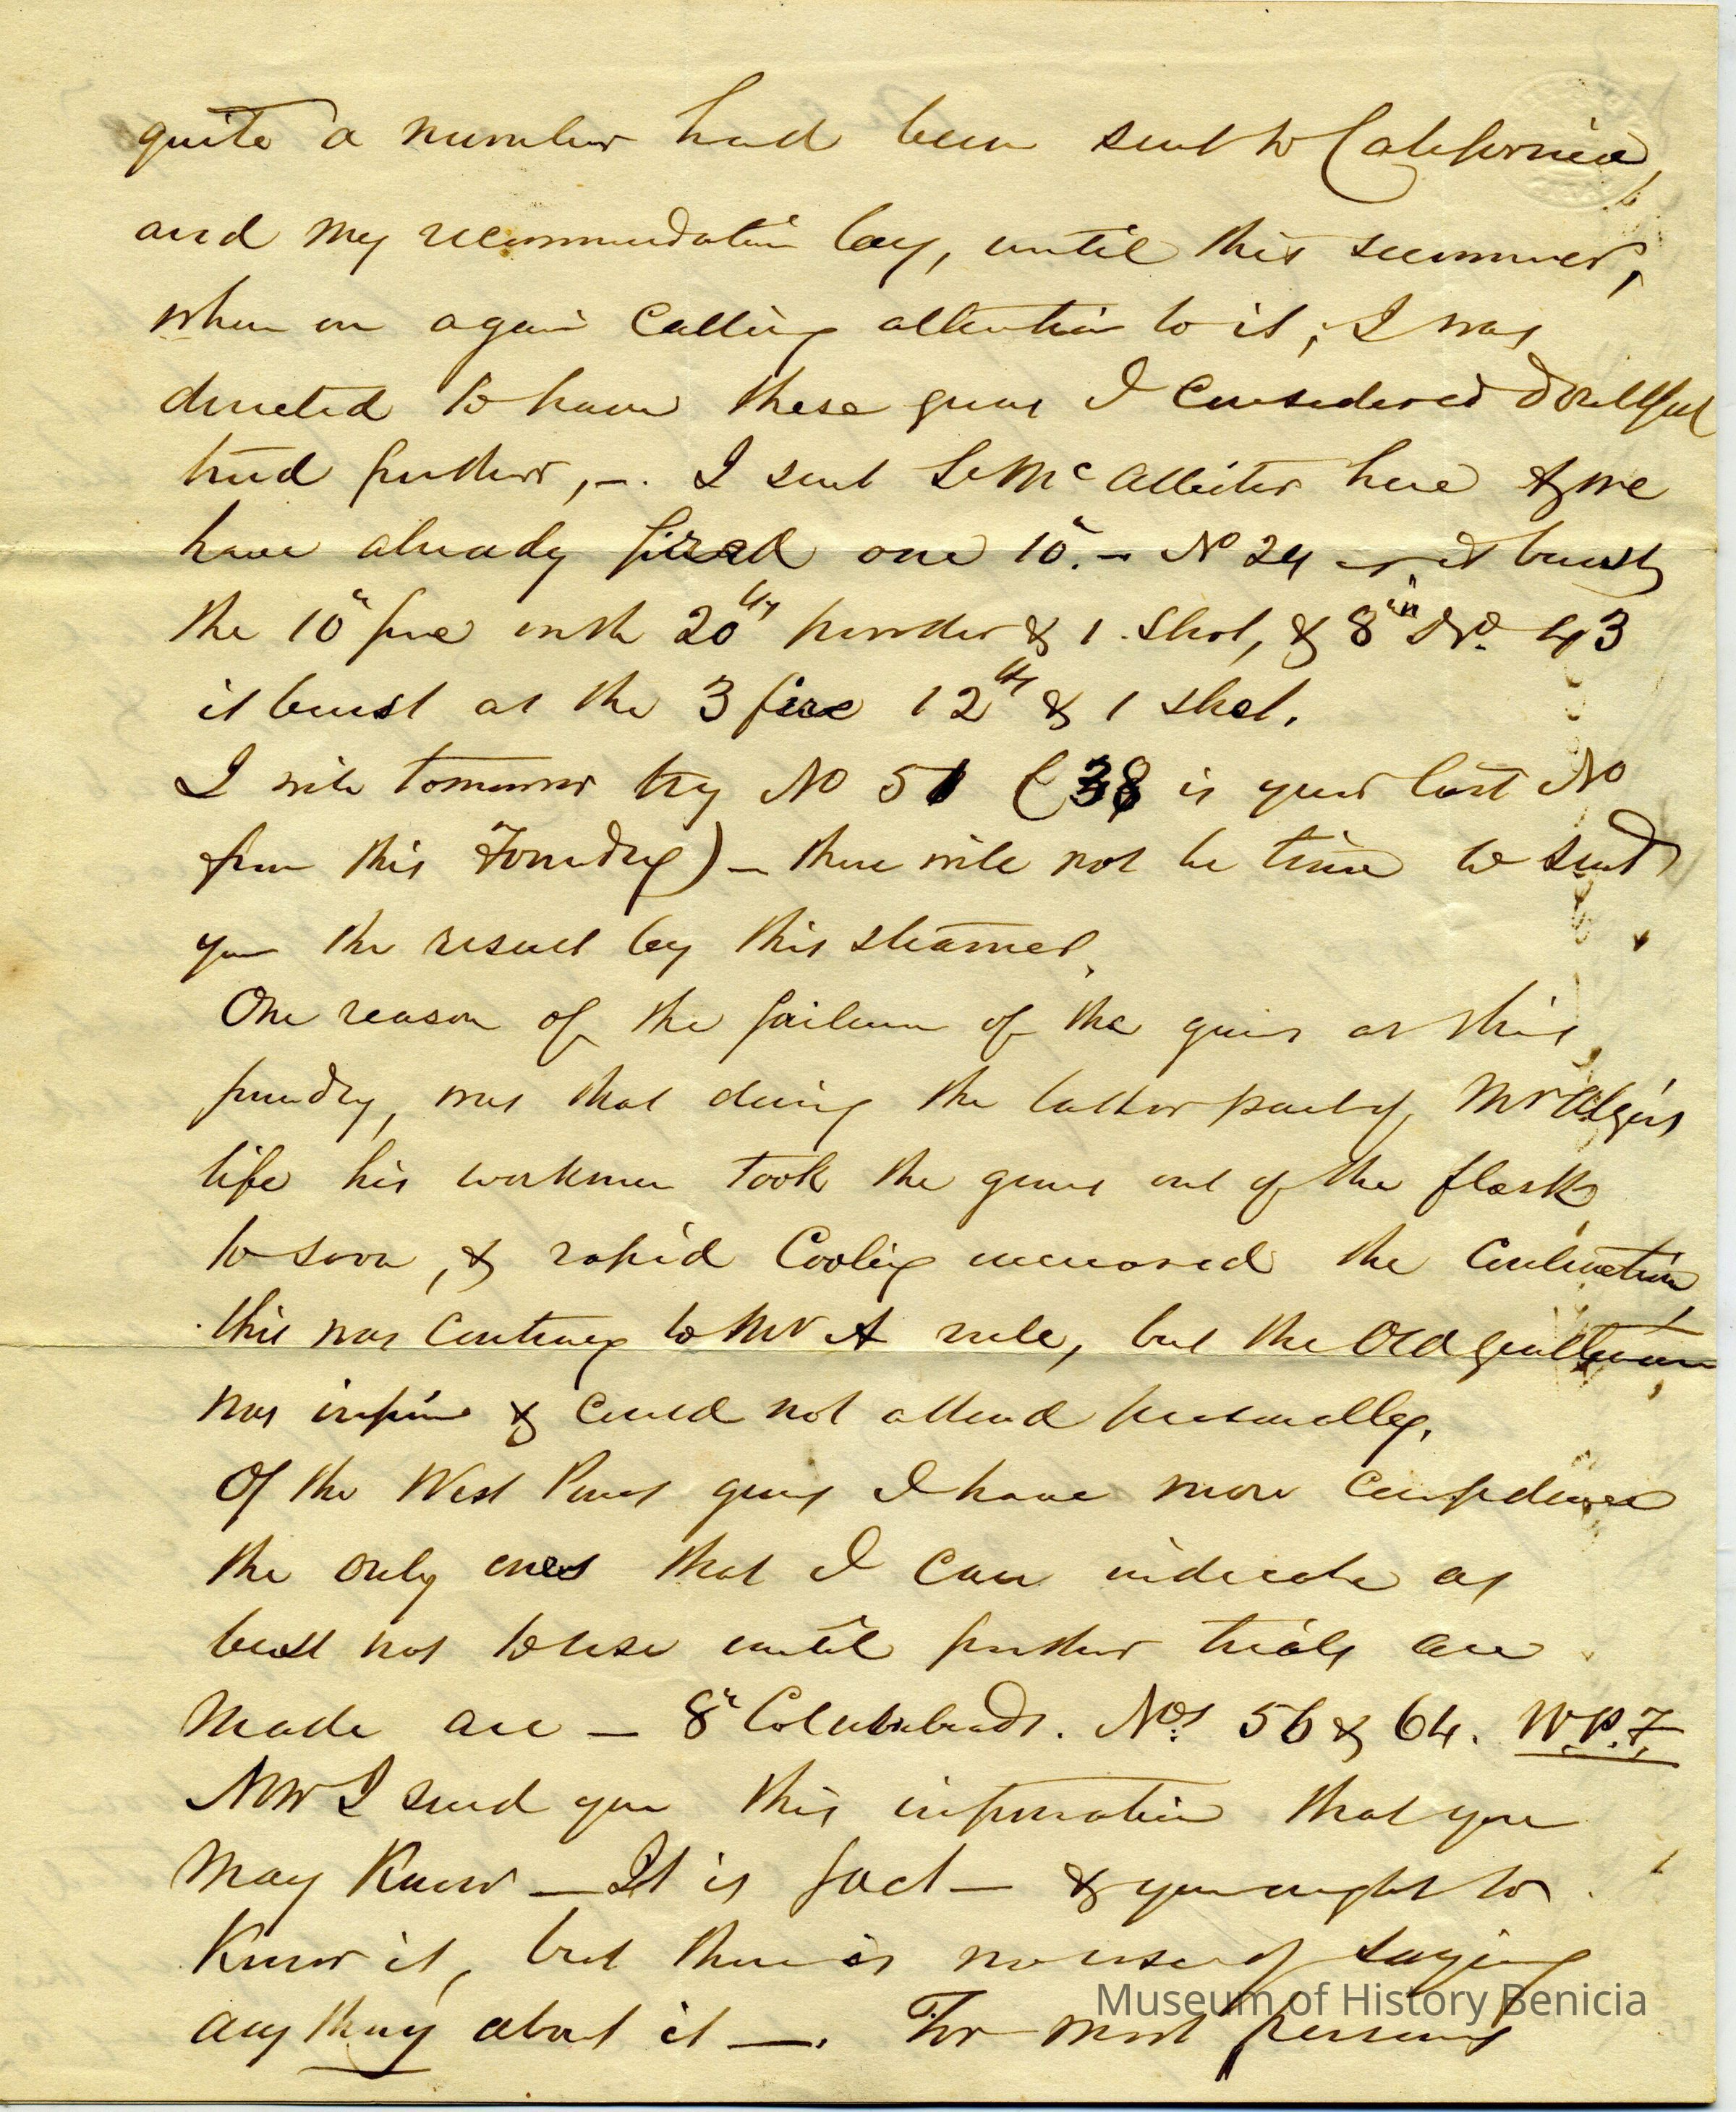 quite a number had been sent to California,
and my recommendation lay, until this summer,
when on again calling attention to it, I was
directed to have these guns I considered doubtful
tried further, –. I sent Lt McAllister here & we
have already fired one 10". – No 24 it burst
the 10" fire with 20 lbs powder & 1 shot, & 8 in No. 43
it burst at the 3 fire 12 lbs & 1 shot.
I will tomorrow try No 51 (38 is your last No
from this Foundry) – there will not be time to send
you the result by this steamer.
One reason of the failure of the guns at this
foundry, was that during the latter part of Mr Algers
life his workmen took the guns out of the flask
to soon, & rapid cooling increased the contraction
this was contrary to Mr A rule, but the Old gentleman
was infirm & could not attend personally.
Of the West Point guns I have more confidence
the only ones that I can indicate as
best not to use until further trials are
made are – 8" Columbiads. Nos 56 & 64. W.P.F.
Now I send you this information that you
may Know – It is fact – & you ought to
Know it, but there is no use of saying
any thing about it –. For most persons
Museum of History Benicia